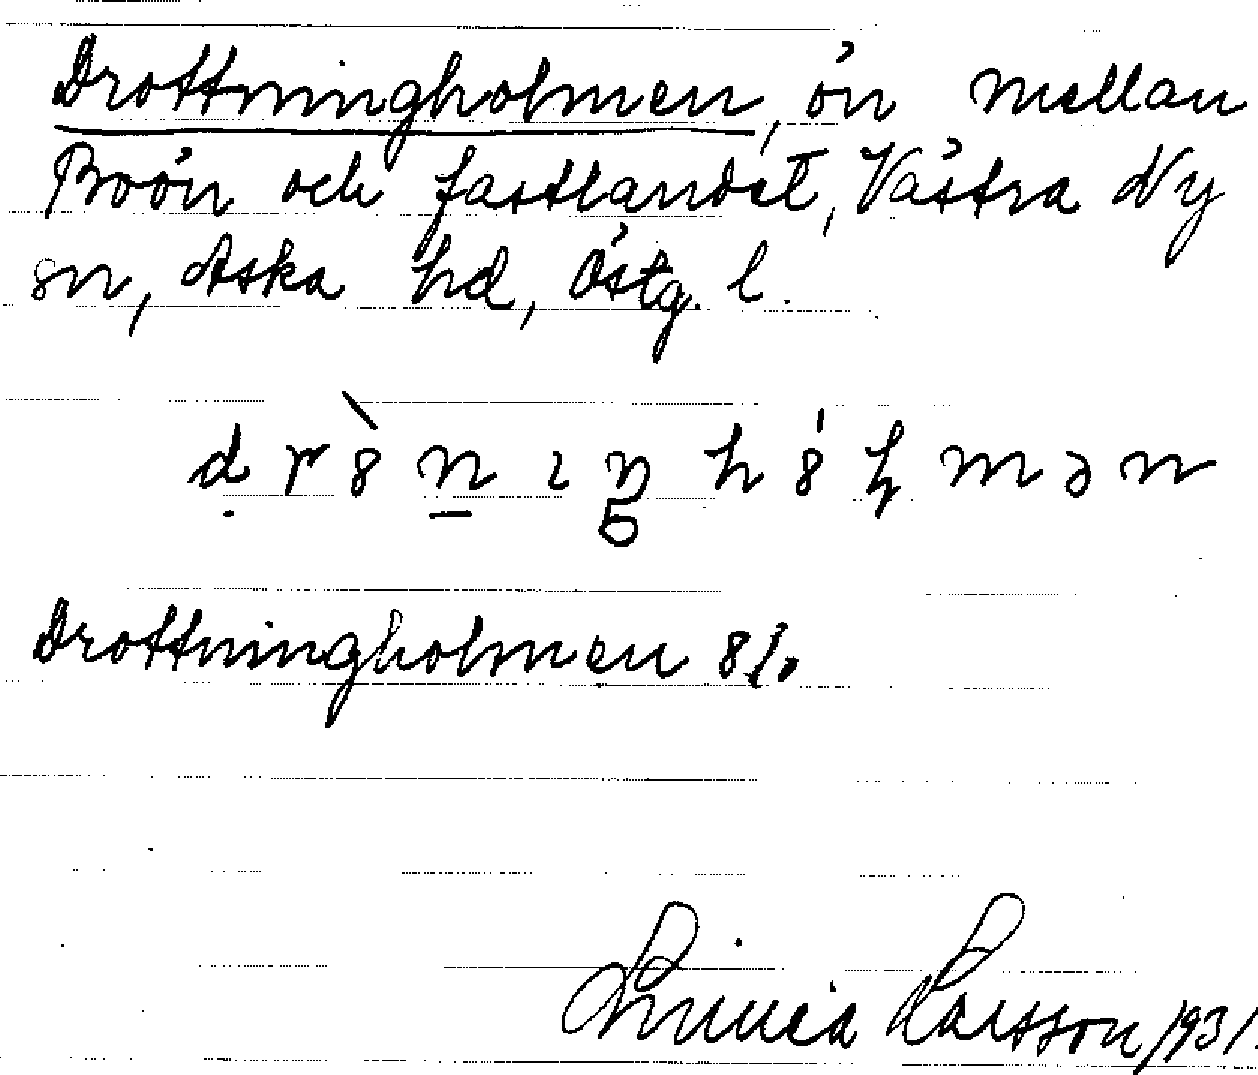 Drottningholmen, ön mellan
Boön och fastlandet, Västra Ny
sn, Aska hd, Östg. l.
Drottningholmen 8/10
Linnéa Larsson, 1931.